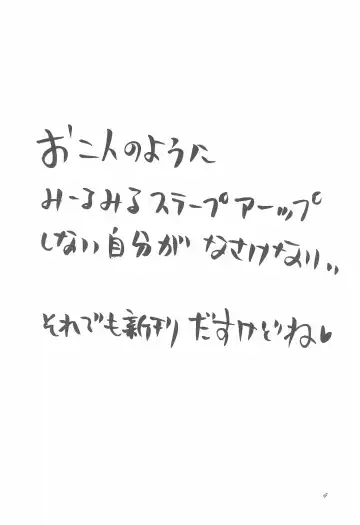 お二人のように
みーるみるステープアーップ
しない自分がなさけない、、
それでも新刊だすけどね♥
4